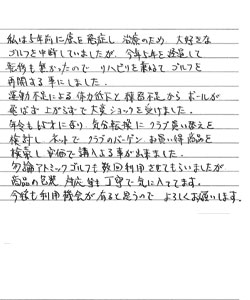 私は5年前に癌を発症し、治療のため、大好きな
ゴルフを中断していましたが、今年5年を経過して
転移も無かったので リハビリを兼ねて ゴルフを
再開する事にしました。
運動不足による体力低下と練習不足から ボールが
飛ばず上がらずで大変ショックを受けました。
年令も65才になり、気分転換に クラブ買い替えを
検討し ネットで クラブのバーゲン お買い得商品を
検索し 安価で購入する事が出来ました。
勿論アトミックゴルフも数回利用させてもらいましたが
商品の品質 対応 皆 丁寧で気に入ってます。
今後も利用機会が有ると思うので よろしくお願いします。